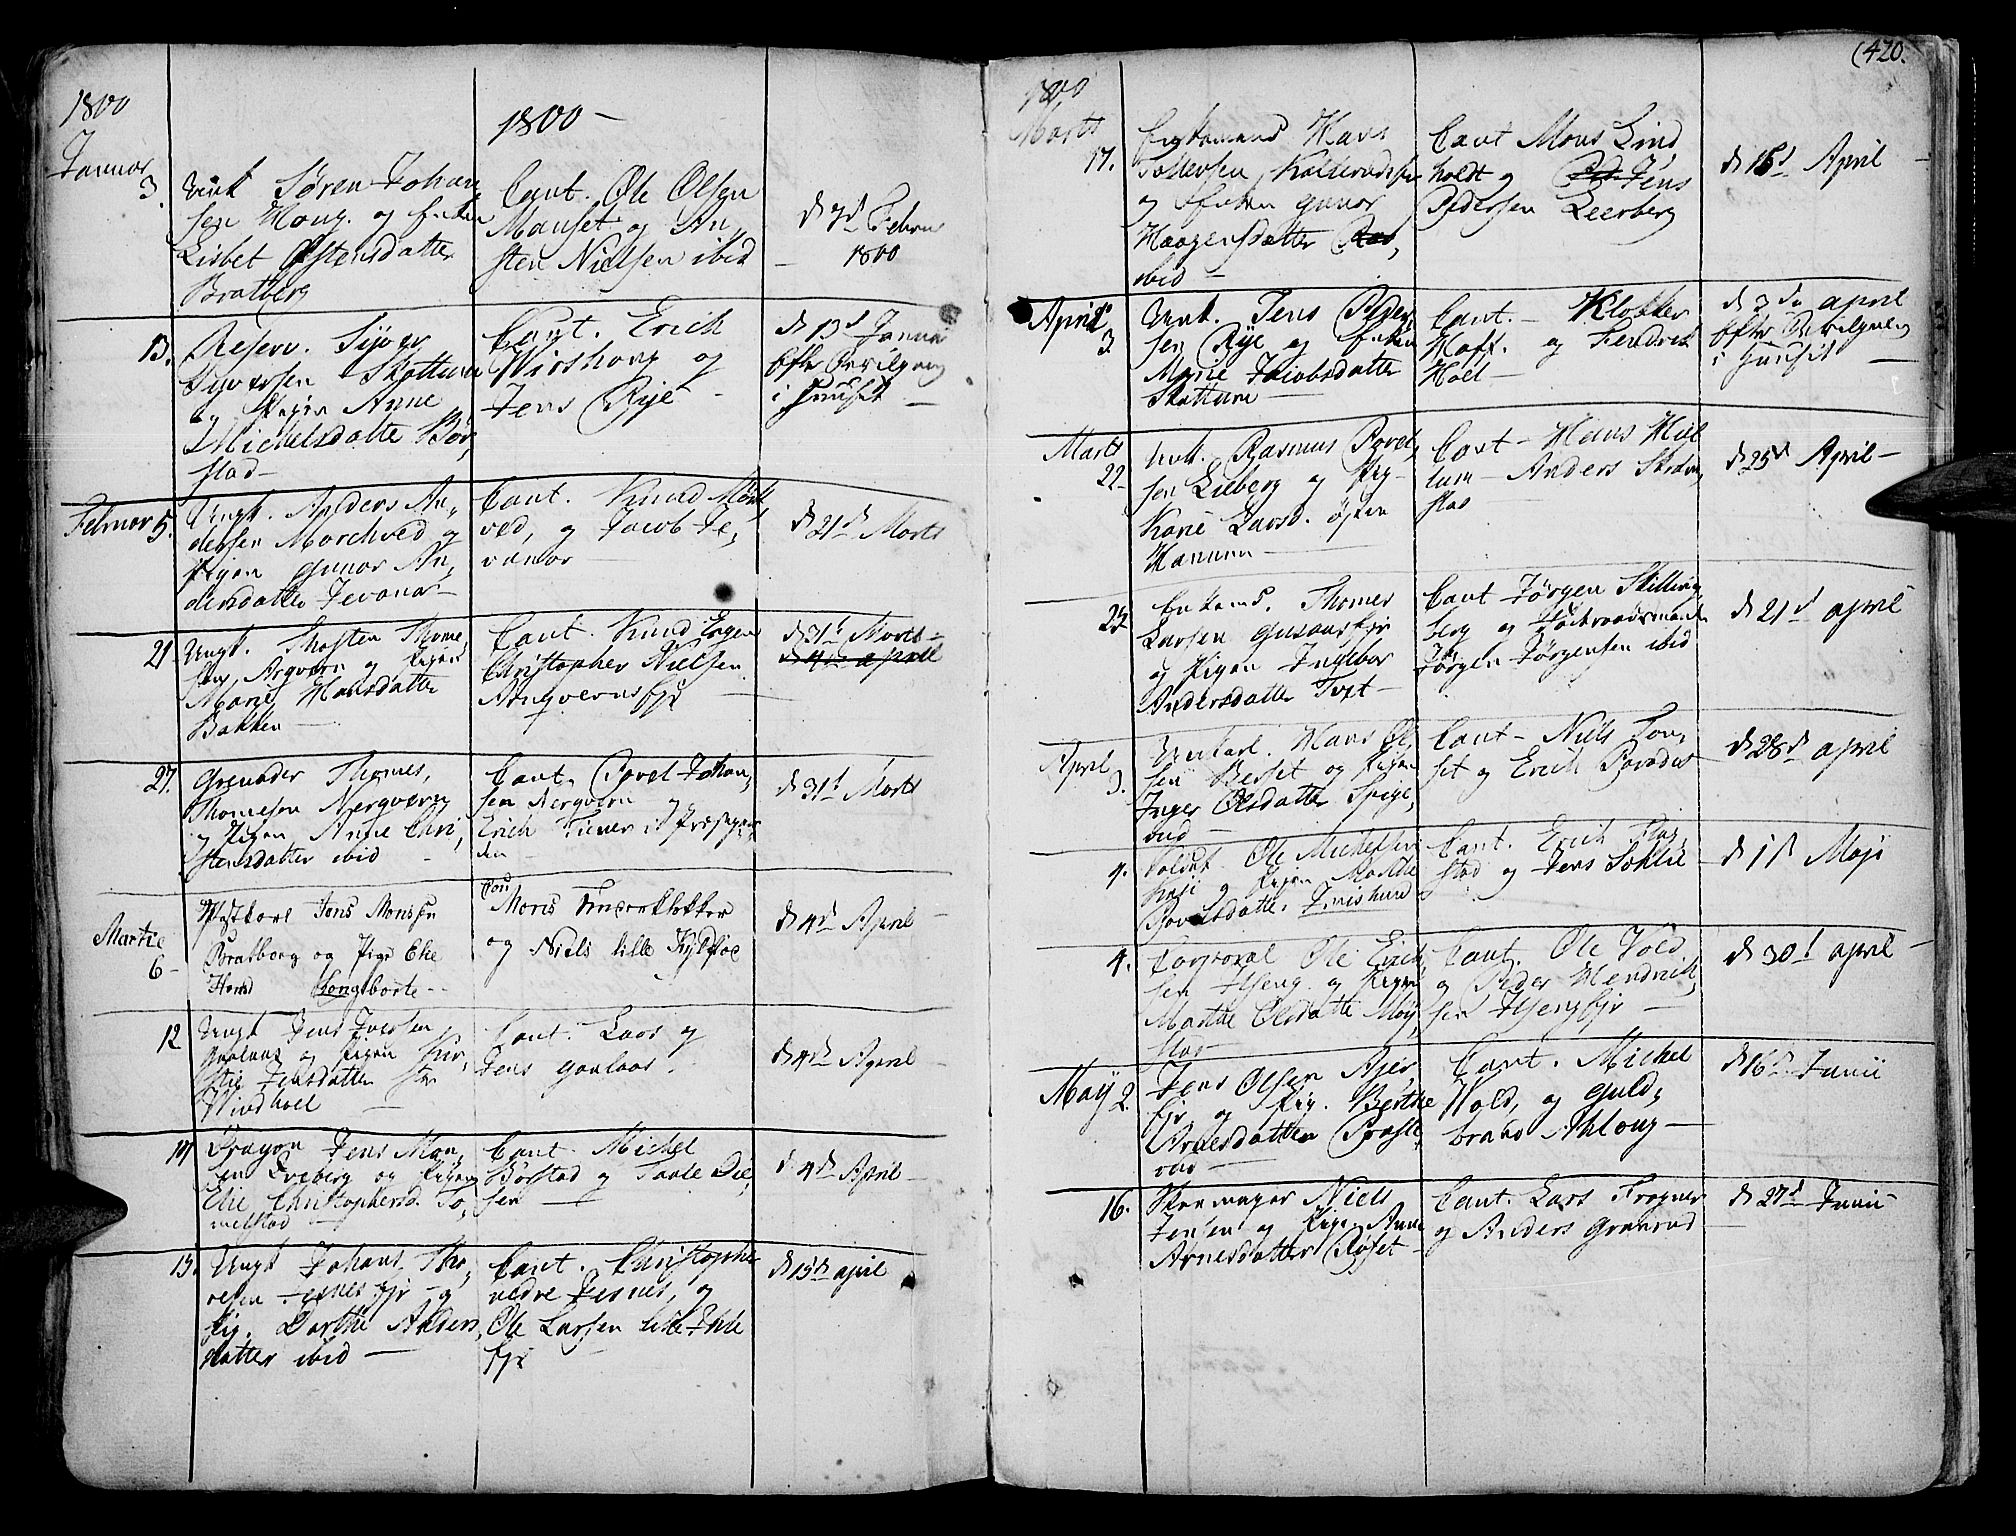 1800
1800 –
Januar
3.
Unk Søren Johan
sen Houg. og Enken
Lisbet Østensdatter
Bratberg
Caut. Ole Olsen
Manset og An,
sten Nielsen ibid
d 7d Febru
1800
13.
Reserv. Siver
Siversen Skattum
og Pigen Anne
Michelsdatte Bør,
stad –
Caut. Erich
og
Jens Rye –
d 13d Janua
efter Bevilgning
i Huuset –
Februar 5.
Ungk. Anders An,
dersen Morchved og
Pigen Gunor An,
dersdatter Jevanor –
Caut. Knud Morck
ved, og Jacob Je,
vanor –
d 21d Marts
21
Ungk. Thosten Thome
sen Argvern og Pigen
Marie Hansdatter
Bakken –
Caut. Knud Engen
Christopher Nielsen
Arnqvernsejr
d 31t Marts –
d 4d april
27.
Grenader Thomes,
Thomesen Nergvern
og Pigen Anne Chri,
stensdatter ibid –
Caut. Povel Johan,
sen Nergvern og
Erich Tiener i Præstegaar
den –
d 31t Marts
Martie
6 –
Postkarl Jens Monsen
Bratberg og Pige Elie
Hansd Longtborte –
Caut
Mons Klokker
og Niels lille Kyldsøe
d 4d April
12
Ungk Jens Iversen
Gaalaas og Pigen Kir,
stie Jensdatter
Windhoel –
Caut. Lars og
Jens Gaalaas.
d 4d April –
14
Dragon Jens Man,
sen Eveberg og Pigen
Elie Christophersd. To,
melstad –
Caut. Michel
Børstad og Taale Die,
sen –
d 4d April –
15.
Ungk Johans Tho,
resen Jesnes Ejr og
Pig. Dorthe Anders,
datter ibid –
Caut. Christopher
nedre Jesnes, og
Ole Larsen lille Ihle
Ejr
d 15d april
(420.
1800
Marts
17.
Enkemand Hans
Tollevsen, Kolterudseje
og Enken Gunor
Haagensdatter
ibid –
Caut Mons Lind
holdt og Jens
Pedersen Leerberg
d 16d April –
April
3.
Unk. Jens Peder
sen Rye og Enken
Marie Jacobsdatter
Skattum –
Caut. – Klokker
Hoff. og Fendrik
Holt –
d 3die april
efter Bevilgning
i Huuset –
Marts
22 –
Unk. Rasmus Povel,
sen Lieberg og Pig
Karie Larsd. Østen
Hammen –
Caut – Hans Hiel
lum – Anders Skram
stad
d 25d April –
23
Enkemd. Thomes
Larsen Gusaasejr
og Pigen Ingebor
Andersdatter Tvet –
Caut Jørgen Skilling
berg og
Jørgen Jørgensen ibid
d 21d april
April
3.
Unkarl. Hans Ol,
sen Berset og Pigen
Inger Olsdatter Spige,
rud –
Caut – Niels Lon,
set og Erich
d 28d april
4.
Soldat Ole Michelsen
og Pigen Malthe
Povelsdatter
Caut. Erich Flag,
stad og Jens Soklie –
d 1d Maji
4.
Corporal Ole Erich
sen Hjeng. og Pigen
Marthe Olsdatte Møy,
stad –
Caut. Ole Vold
og Peder Hendrich,
sen Hjengsejr –
d 30d april –
May 2.
Jens Olsen Ajer
Ejr og Pig. Berthe
Arnesdatter Præste,
rud –
Caut. Michel
Wold, og Guld,
brand Ahloug –
d 16d Junii
16.
Skomager Niels
Jensen og Pige Anne
Arnesdatter Røset –
Caut. Lars Frogner
og Anders Granrud
d 27d Junii –